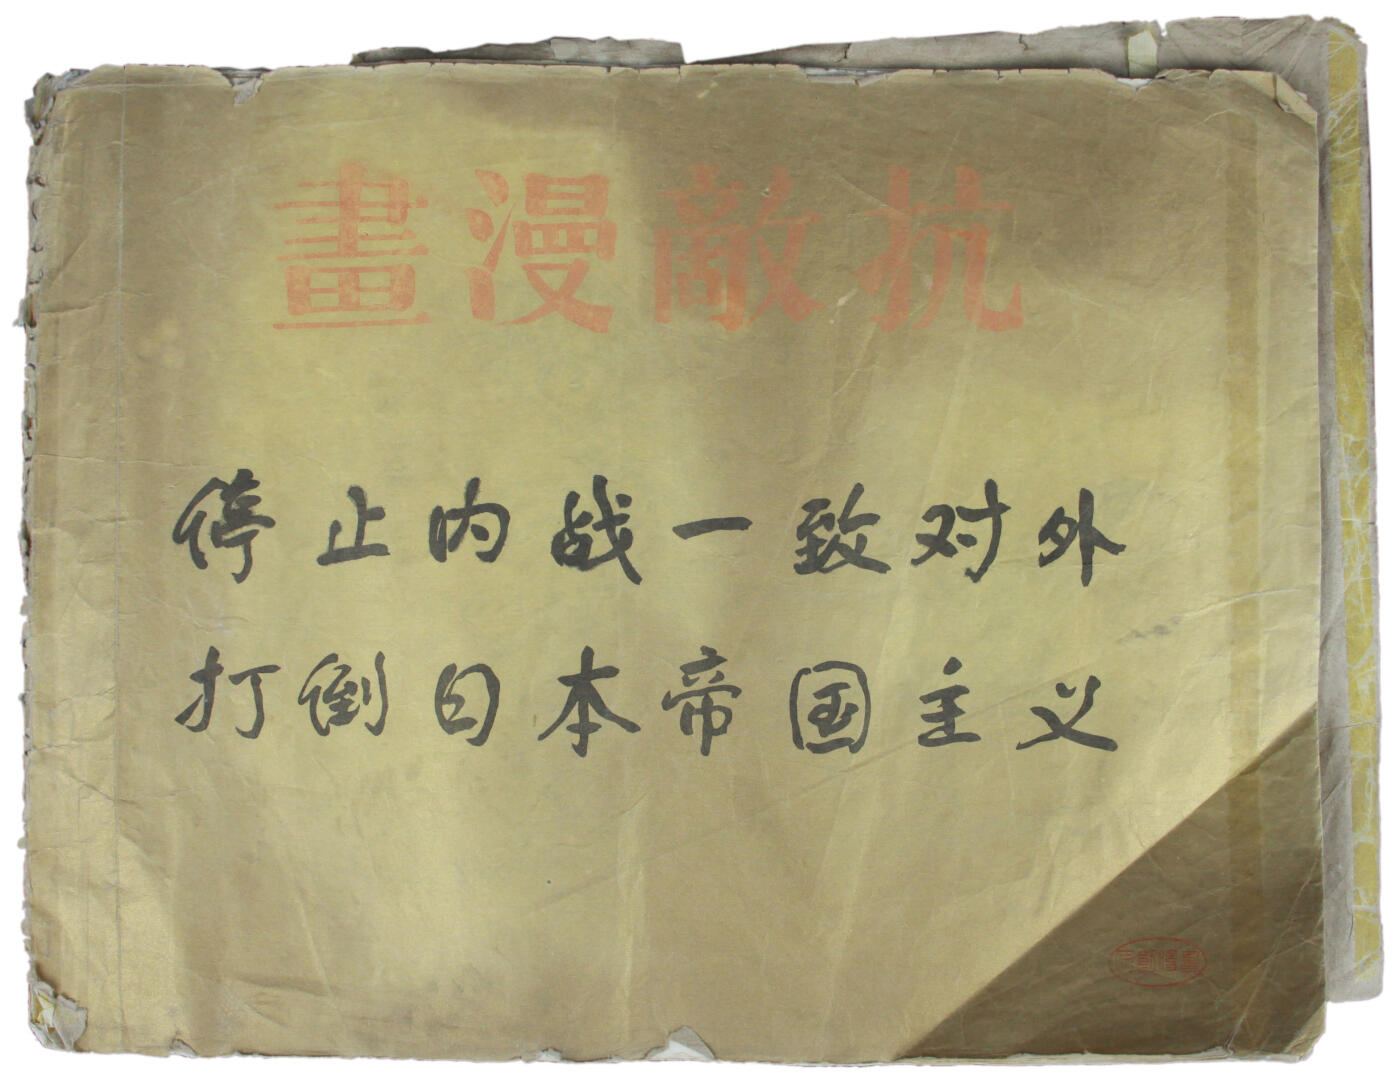 抗敵漫畫
停止内战一致对外
打倒日本帝国主义